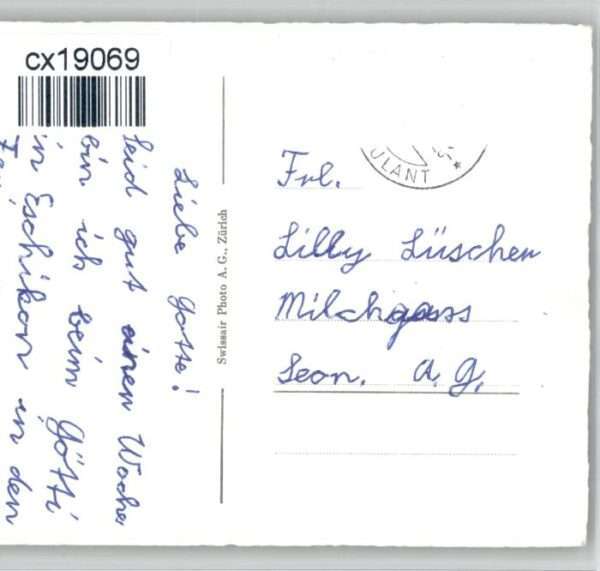 cx19069
Liebe Gotte!
Seid gut einen Woche
bin ich beim Götti
in Eschikon in den
Swissair Photo A. G., Zürich
ULANT *
Frl.
Lilly Lüscher
Milchgass
Seon. A. G.